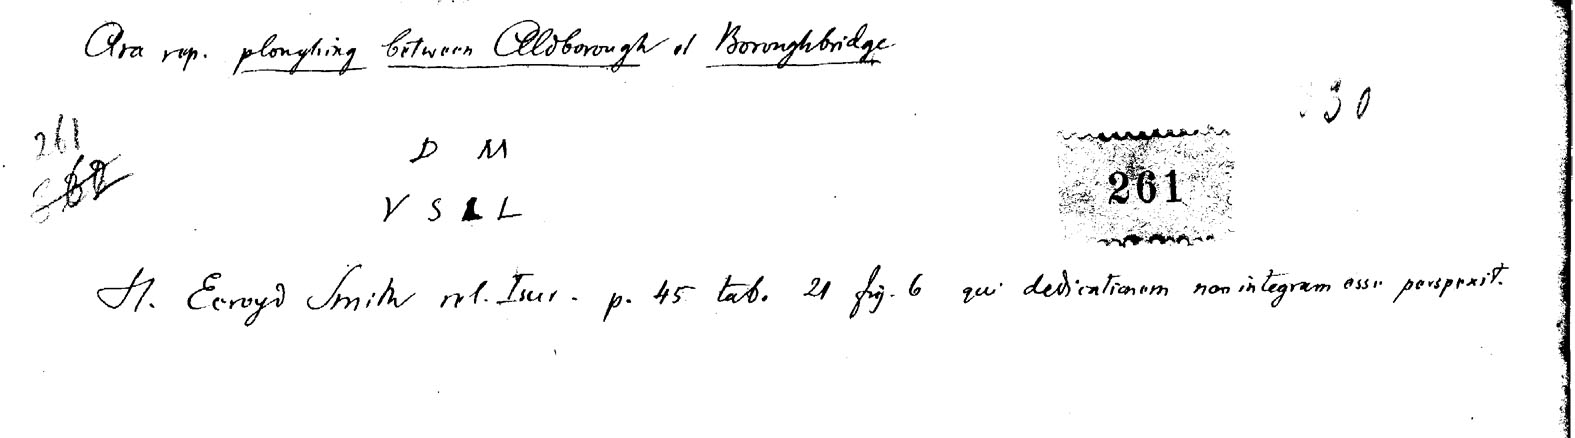 Ara rep. ploughing between Aldborough et Boroughbridge
30
261
D M
261
V S L L
H. Ecroyd Smith rel. Isur. p. 45 tab. 21 fig. 6 qui dedicationem non integram esse perspexit.